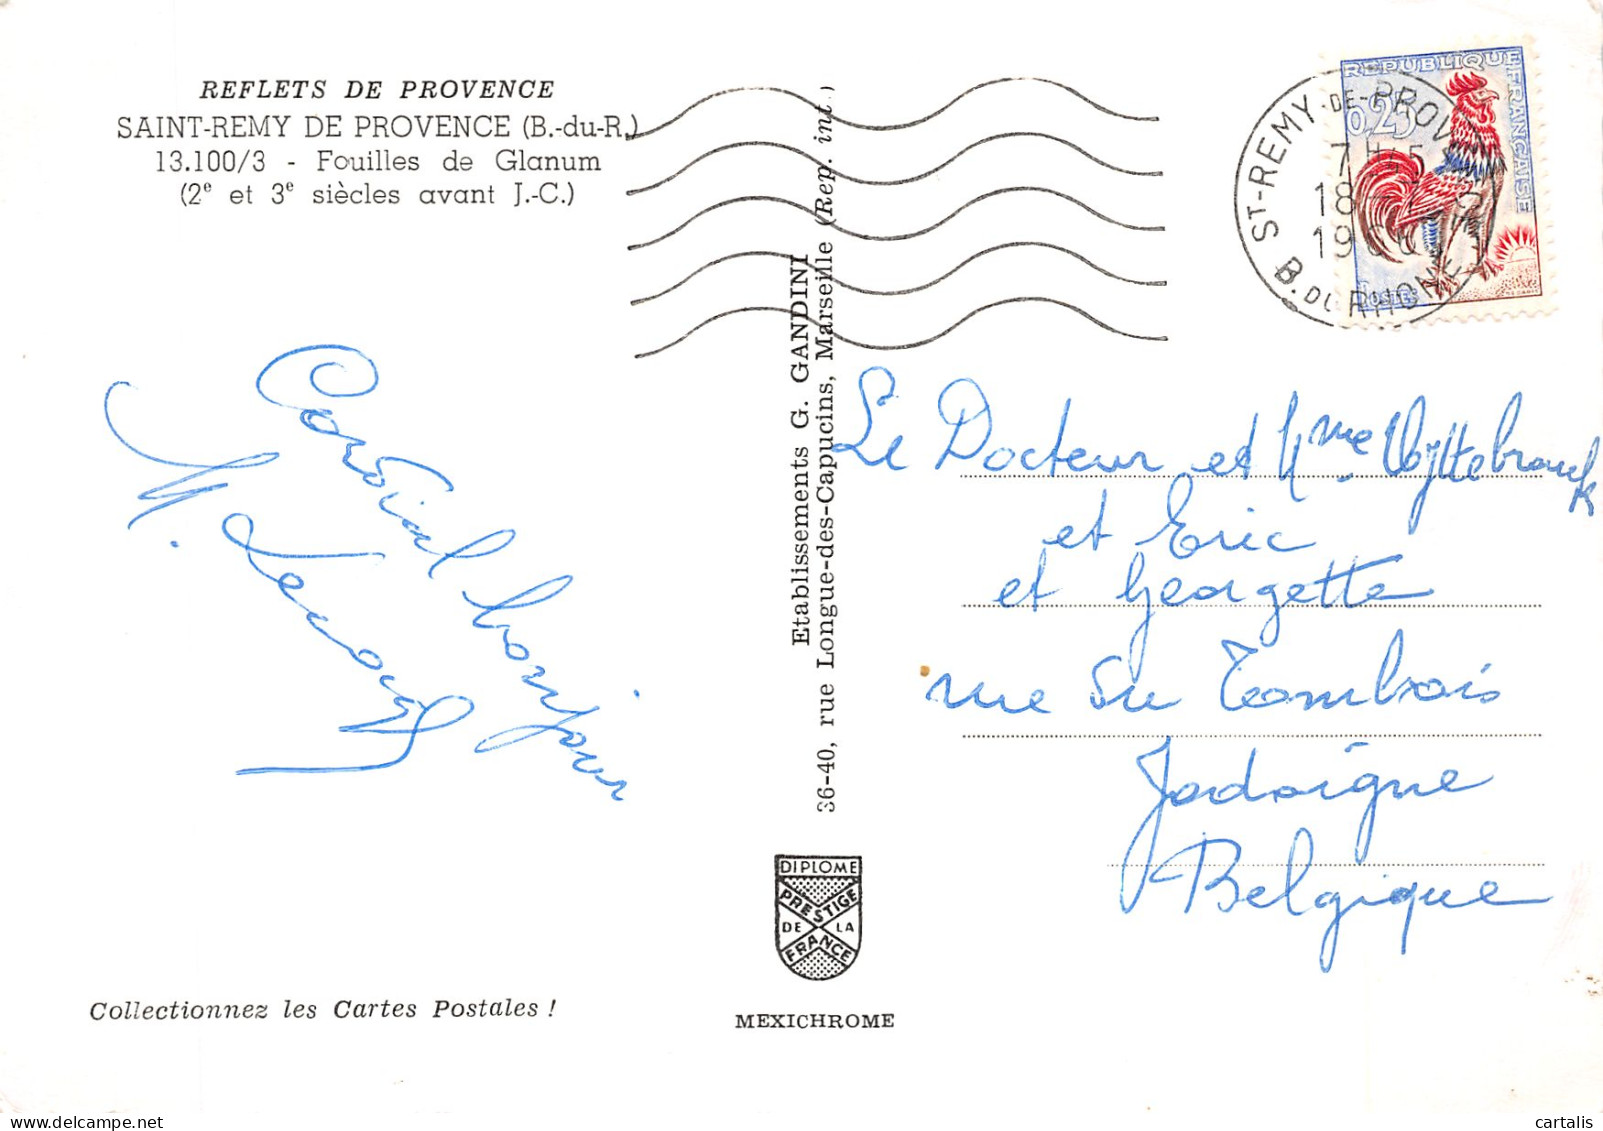 REFLETS DE PROVENCE
SAINT-REMY DE PROVENCE (B.-du-R.)
13.100/3 - Fouilles de Glanum
(2e et 3e siècles avant J.-C.)
Cordial bonjour
M.
Collectionnez les Cartes Postales !
Etablissements G. GANDINI
36-40, rue Longue-des-Capucins, Marseille (Rep. int.)
DIPLOME
PRESTIGE
DE LA
FRANCE
MEXICHROME
REPUBLIQUE FRANÇAISE
0,25
POSTES
ST-REMY-DE-PROVENCE
18
B. DU RHONE
Le Docteur et Mme Uyttebrouck
et Eric
et Georgette
rue du Tombois
Jodoigne
Belgique
cartalis